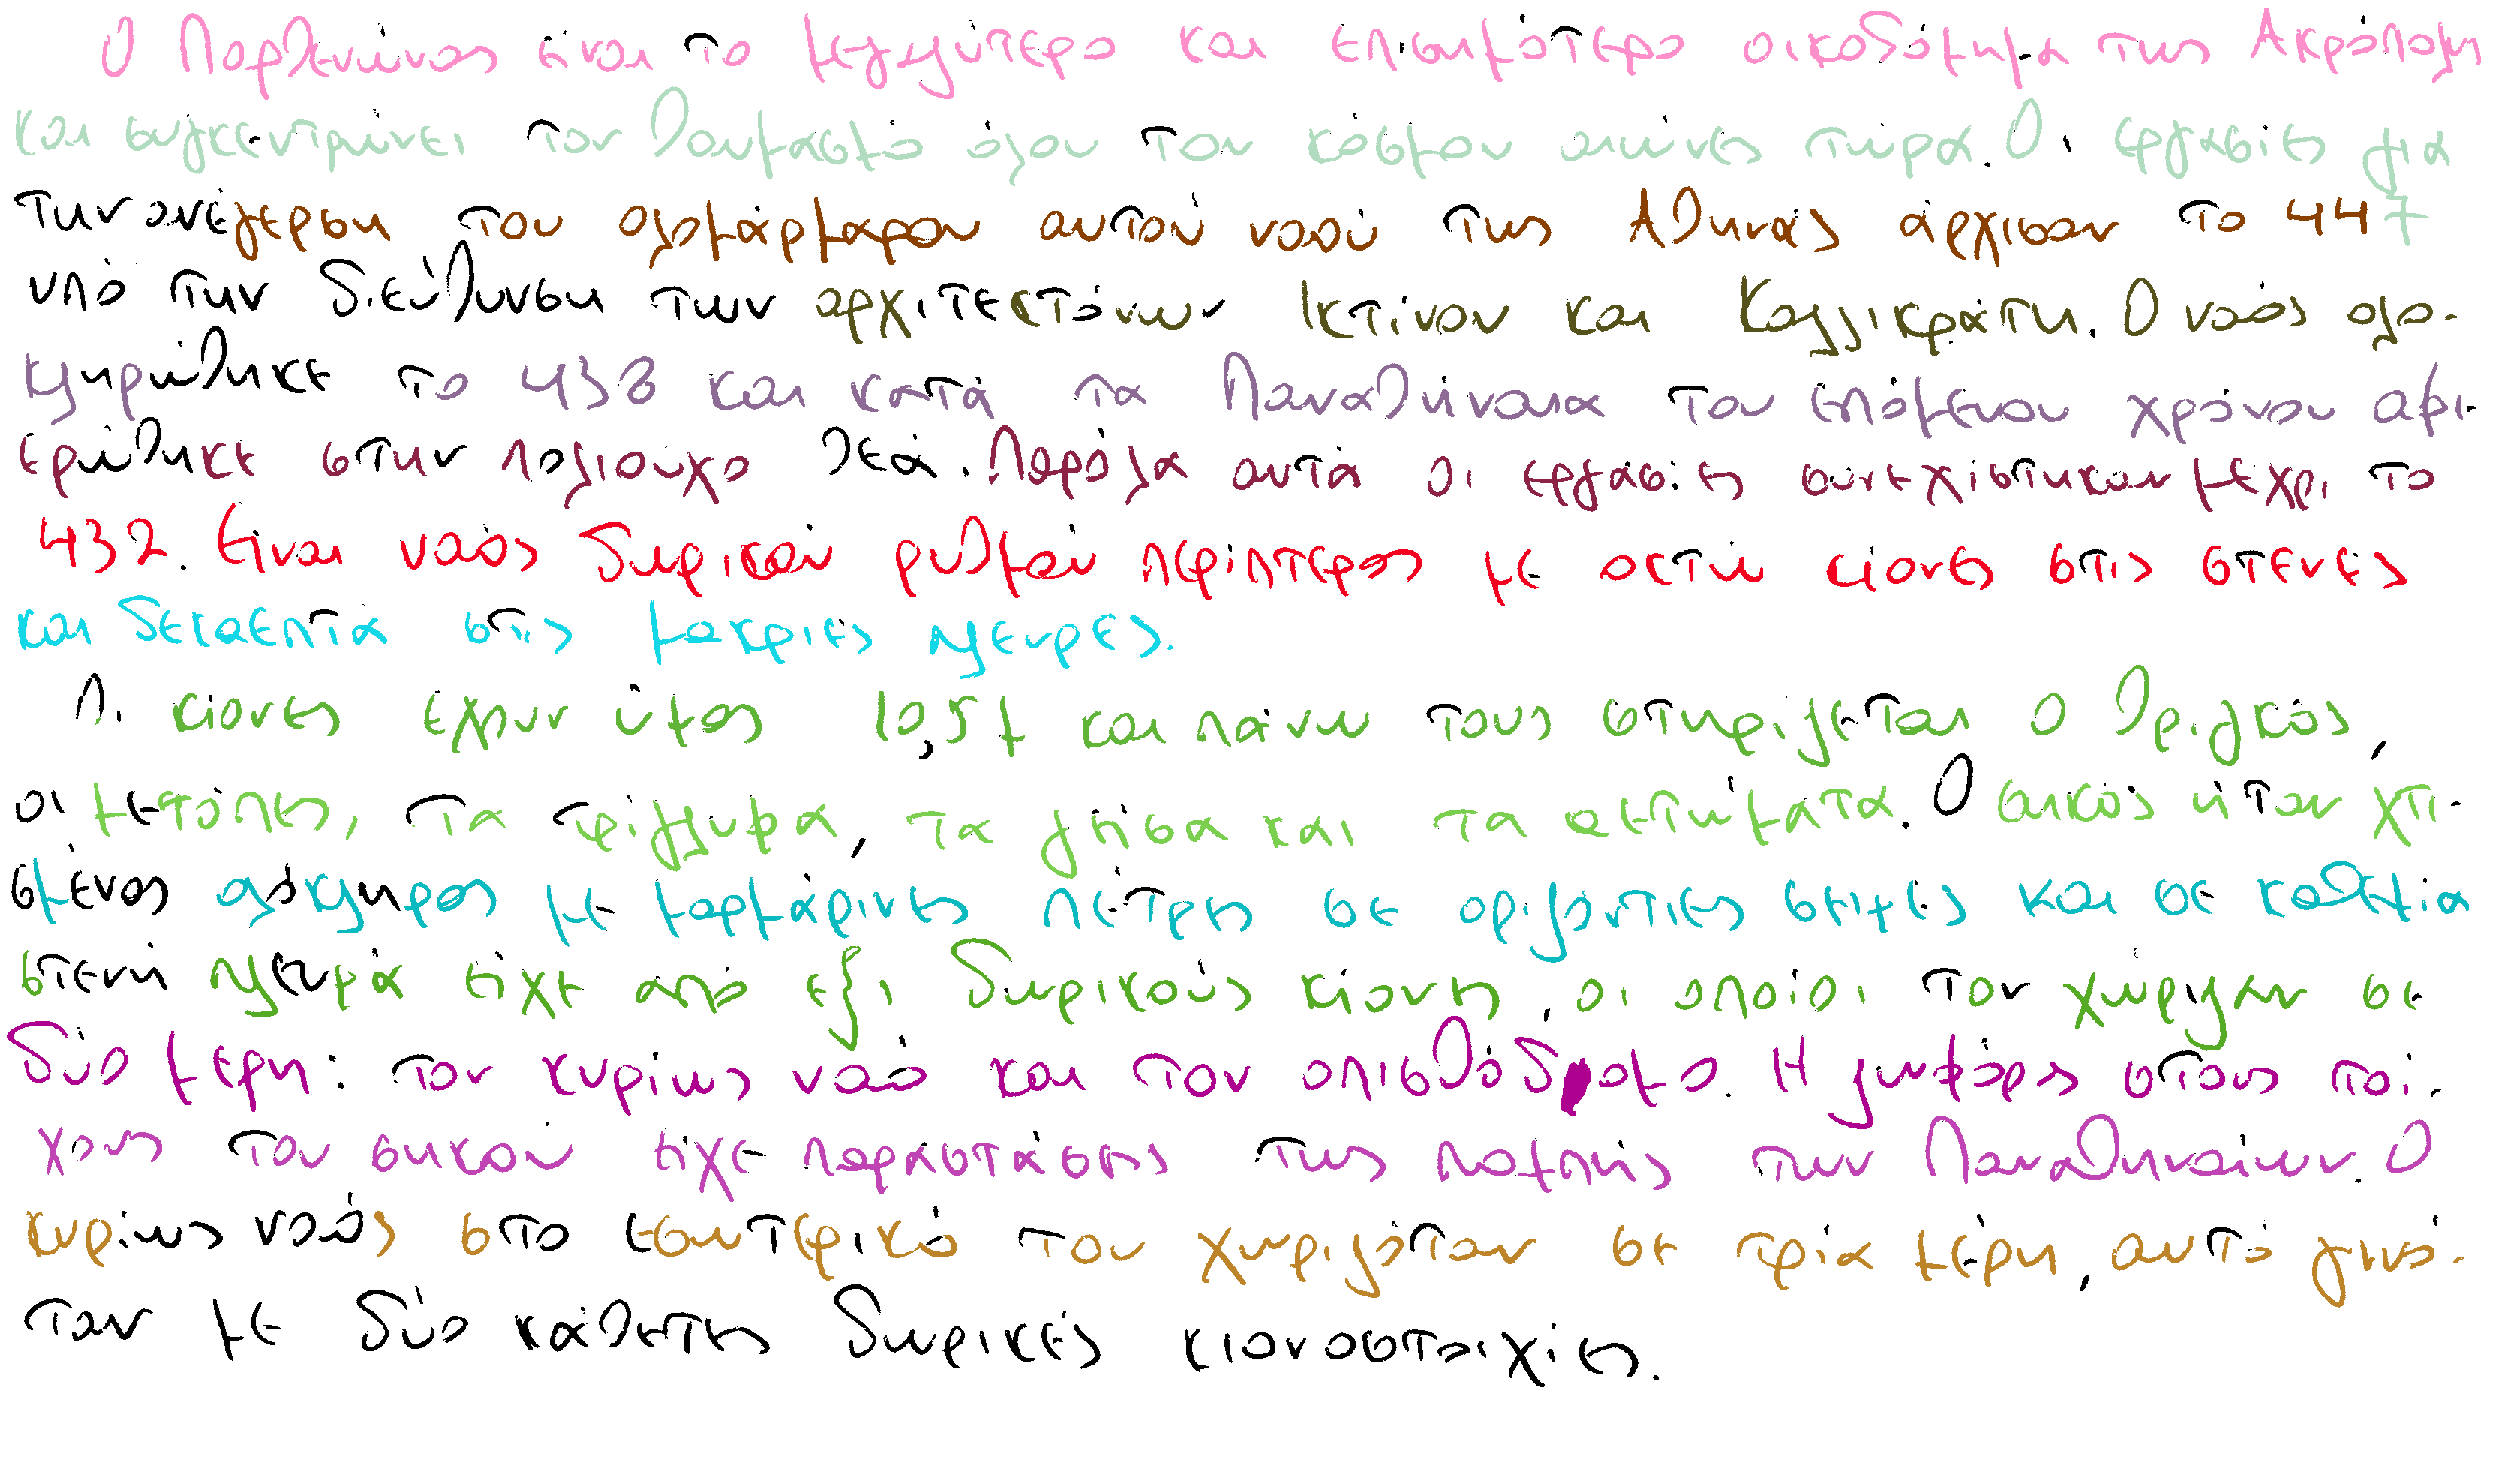 Ο Παρθενώνας είναι το μεγαλύτερο και επισημότερο οικοδόμημα της Ακρόπολης
και συγκεντρώνει τον θαυμασμό όλου του κόσμου αιώνες τώρα. Οι εργασίες για
την ανέγερση του ολομάρμαρου αυτού ναού της Αθηνάς άρχισαν το 447
υπό την διεύθυνση των αρχιτεκτόνων Ικτίνου και Καλλικράτη. Ο ναός ολο-
κληρώθηκε το 438 και κατά τα Παναθήναια του επόμενου χρόνου αφι-
ερώθηκε στην πολιούχο θεά. Παρόλα αυτά οι εργασίες συνεχίστηκαν μέχρι το
432. Είναι ναός δωρικού ρυθμού περίπτερος με οκτώ κίονες στις στενές
και δεκαεπτά στις μακριές πλευρές.
Οι κίονες έχουν ύψος 10,5μ και πάνω τους στηρίζεται ο θριγκός,
οι μετόπες, τα τρίγλυφα, τα γείσα και τα αετώματα. Ο σηκός ήταν χτι-
σμένος ολόκληρος με μαρμάρινες πέτρες σε οριζόντιες σειρές και σε καθεμία
στενή πλευρά είχε από έξι δωρικούς κίονες, οι οποίοι τον χώριζαν σε
δύο μέρη: τον κυρίως ναό και τον οπισθόδομο. Η ζωφόρος στους τοί-
χους του σηκού είχε παραστάσεις της πομπής των Παναθηναίων. Ο
κυρίως ναός στο εσωτερικό του χωριζόταν σε τρία μέρη, αυτό γινό-
ταν με δύο κάθετες δωρικές κιονοστοιχίες.